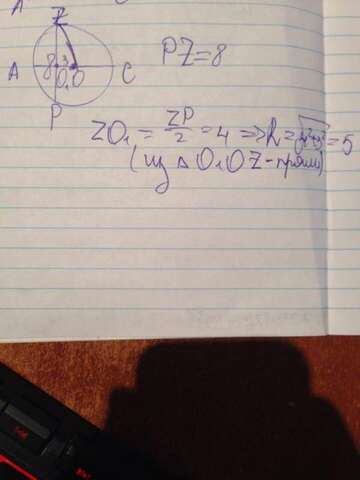 Z
PZ=8
A 8 3 O₁ O C
P
ZO₁ = ZP/2 = 4 => R = √4²+3² = 5
(из △ O₁OZ - прям)